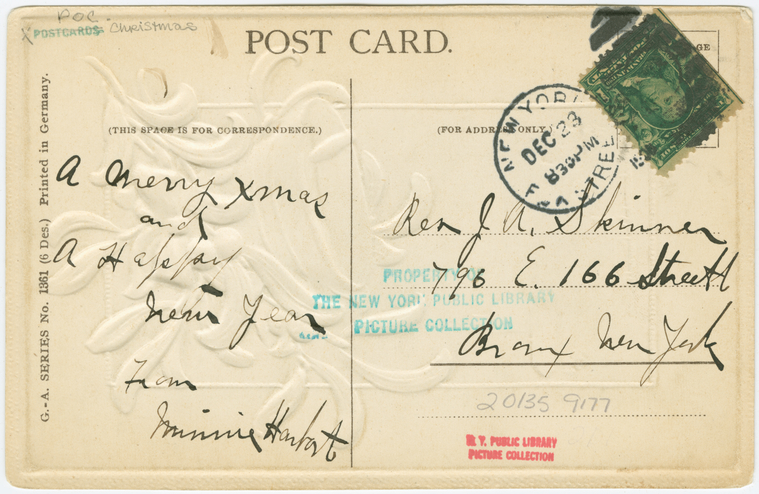 POC.
x POSTCARDS: Christmas
POST CARD.
(THIS SPACE IS FOR CORRESPONDENCE.)
(FOR ADDRESS ONLY.)
G.-A. SERIES No. 1361 (6 Des.) Printed in Germany.
NEW YORK
DEC 23
830PM
A Merry Xmas
and
A Happy
New Year
From
Minnie
Rev J. A. Skinner
796 E. 166 Street
Bronx New York
PROPERTY OF
THE NEW YORK PUBLIC LIBRARY
PICTURE COLLECTION
20135 9177
N. Y. PUBLIC LIBRARY
PICTURE COLLECTION